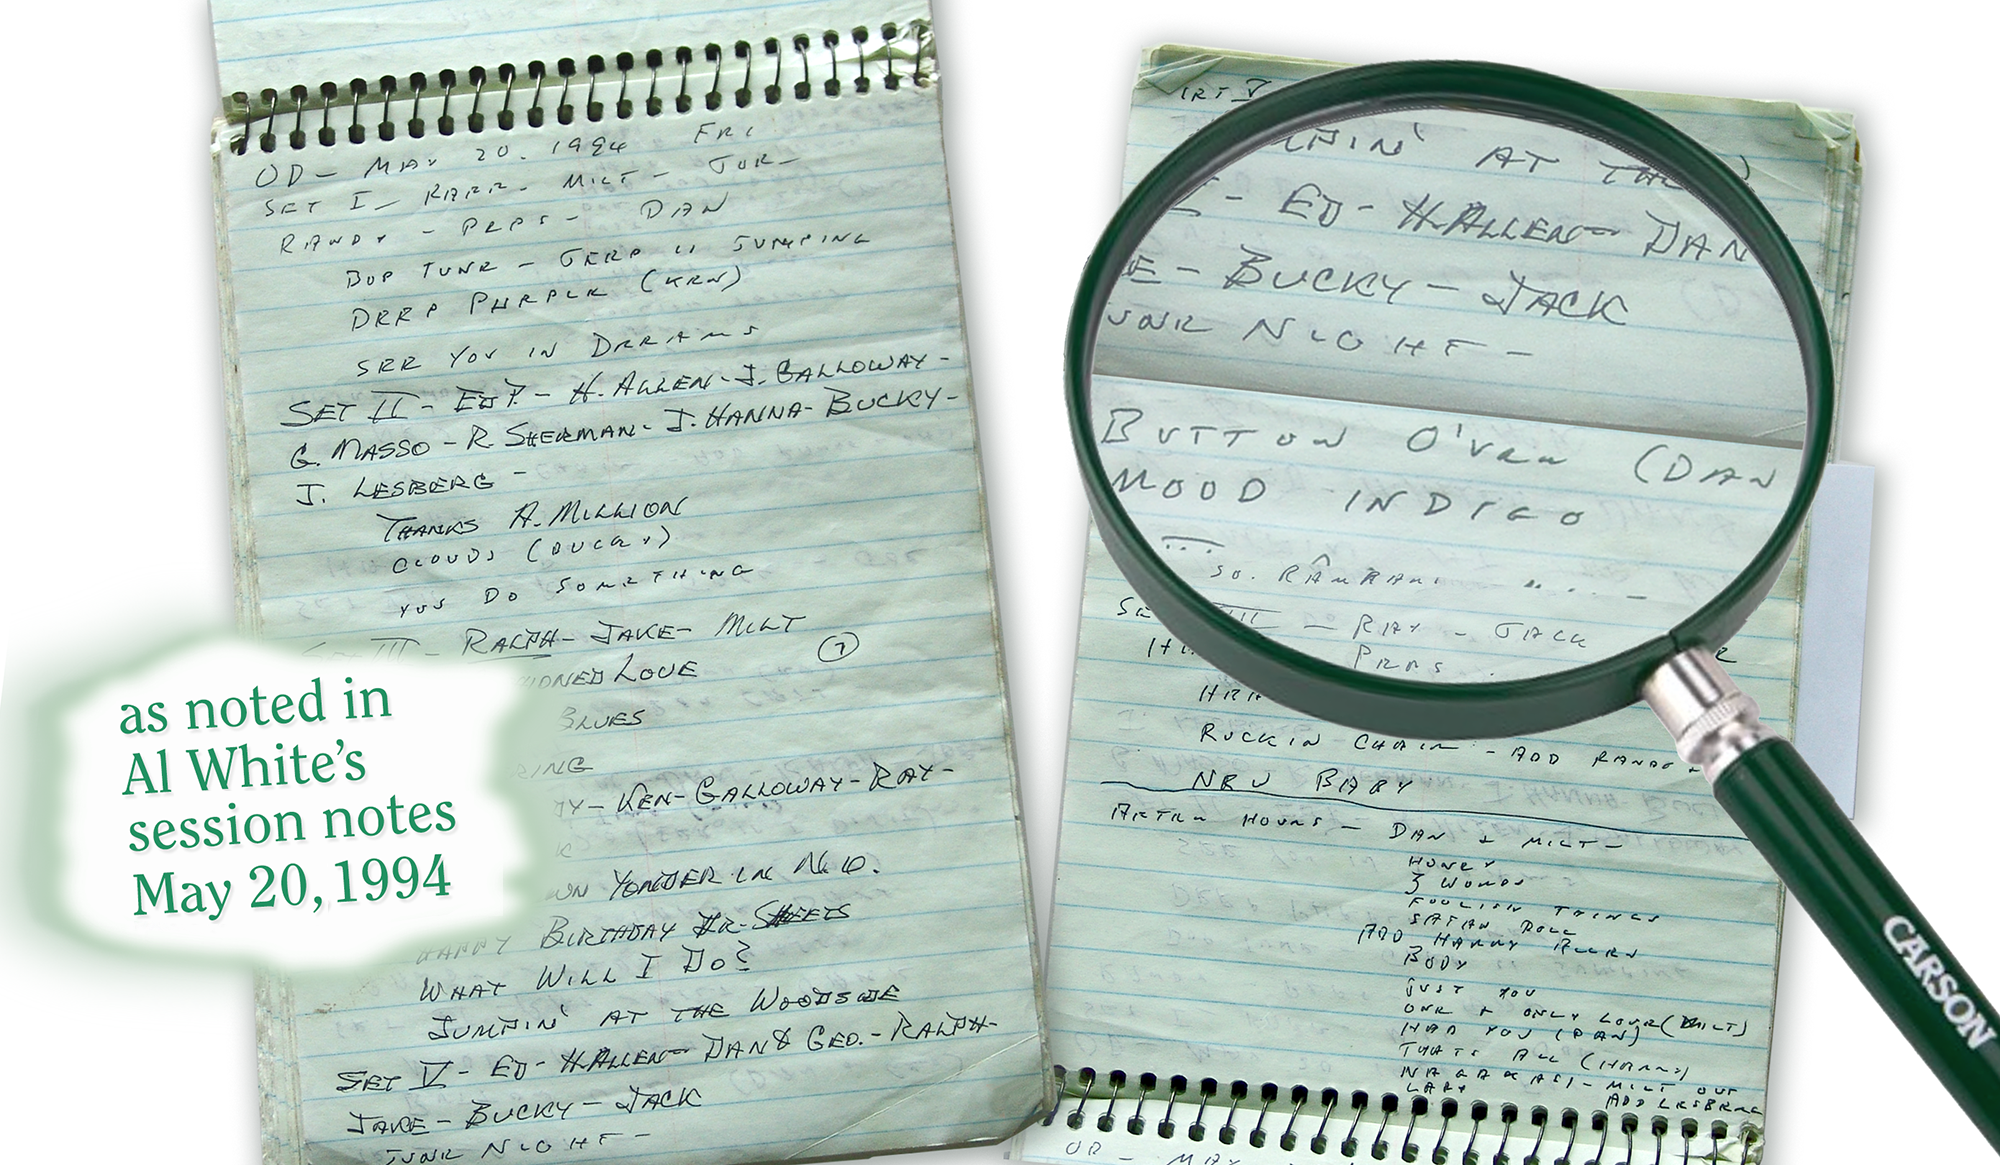 OD - MAY 20. 1994 FRI
SET I - KARR - MILT - JOE -
RANDY - PEPS - DAN
BOP TUNE - GERP II JUMPING
DEEP PURPLE (KEN)
SEE YOU IN DREAMS
SET II - ED P. - H. ALLEN - J. GALLOWAY -
G. MASSO - R. SHERMAN - J. HANNA - BUCKY -
J. LESBERG -
THANKS A. MILLION
CLOUDS (BUCKY)
YOU DO SOMETHING
SET III - RALPH - JAKE - MILT
IONED LOVE 7
BLUES
RING
Y - KEN - GALLOWAY - RAY -
K
WN YONDER IN N.O.
HAPPY BIRTHDAY MR. SHEETS
WHAT WILL I DO?
JUMPIN' AT THE WOODSIDE
SET V - ED - H. ALLEN - DAN & GEO. - RALPH -
JAKE - BUCKY - JACK
JUNE NIGHT -
as noted in
Al White's
session notes
May 20, 1994
V
MPIN' AT THE
- ED - H. ALLEN - DAN
E - BUCKY - JACK
JUNE NIGHT -
BUTTON O'VER (DAN
MOOD INDIGO
SE III - RAY - JACK
PEPS
ROCKIN CHAIR - ADD RANDY
NEW BABY
AFTER HOURS - DAN + MILT -
HONEY
3 WORDS
FOOLISH THINGS
SATAN DOLL
ADD HARRY ALLEN
BODY
JUST YOU
ONE + ONLY LOVE (MILT)
HAD YOU (DAN)
THATS ALL (HARRY)
NAGAKASI - MILT OUT
LADY ADD LESBERG
CARSON